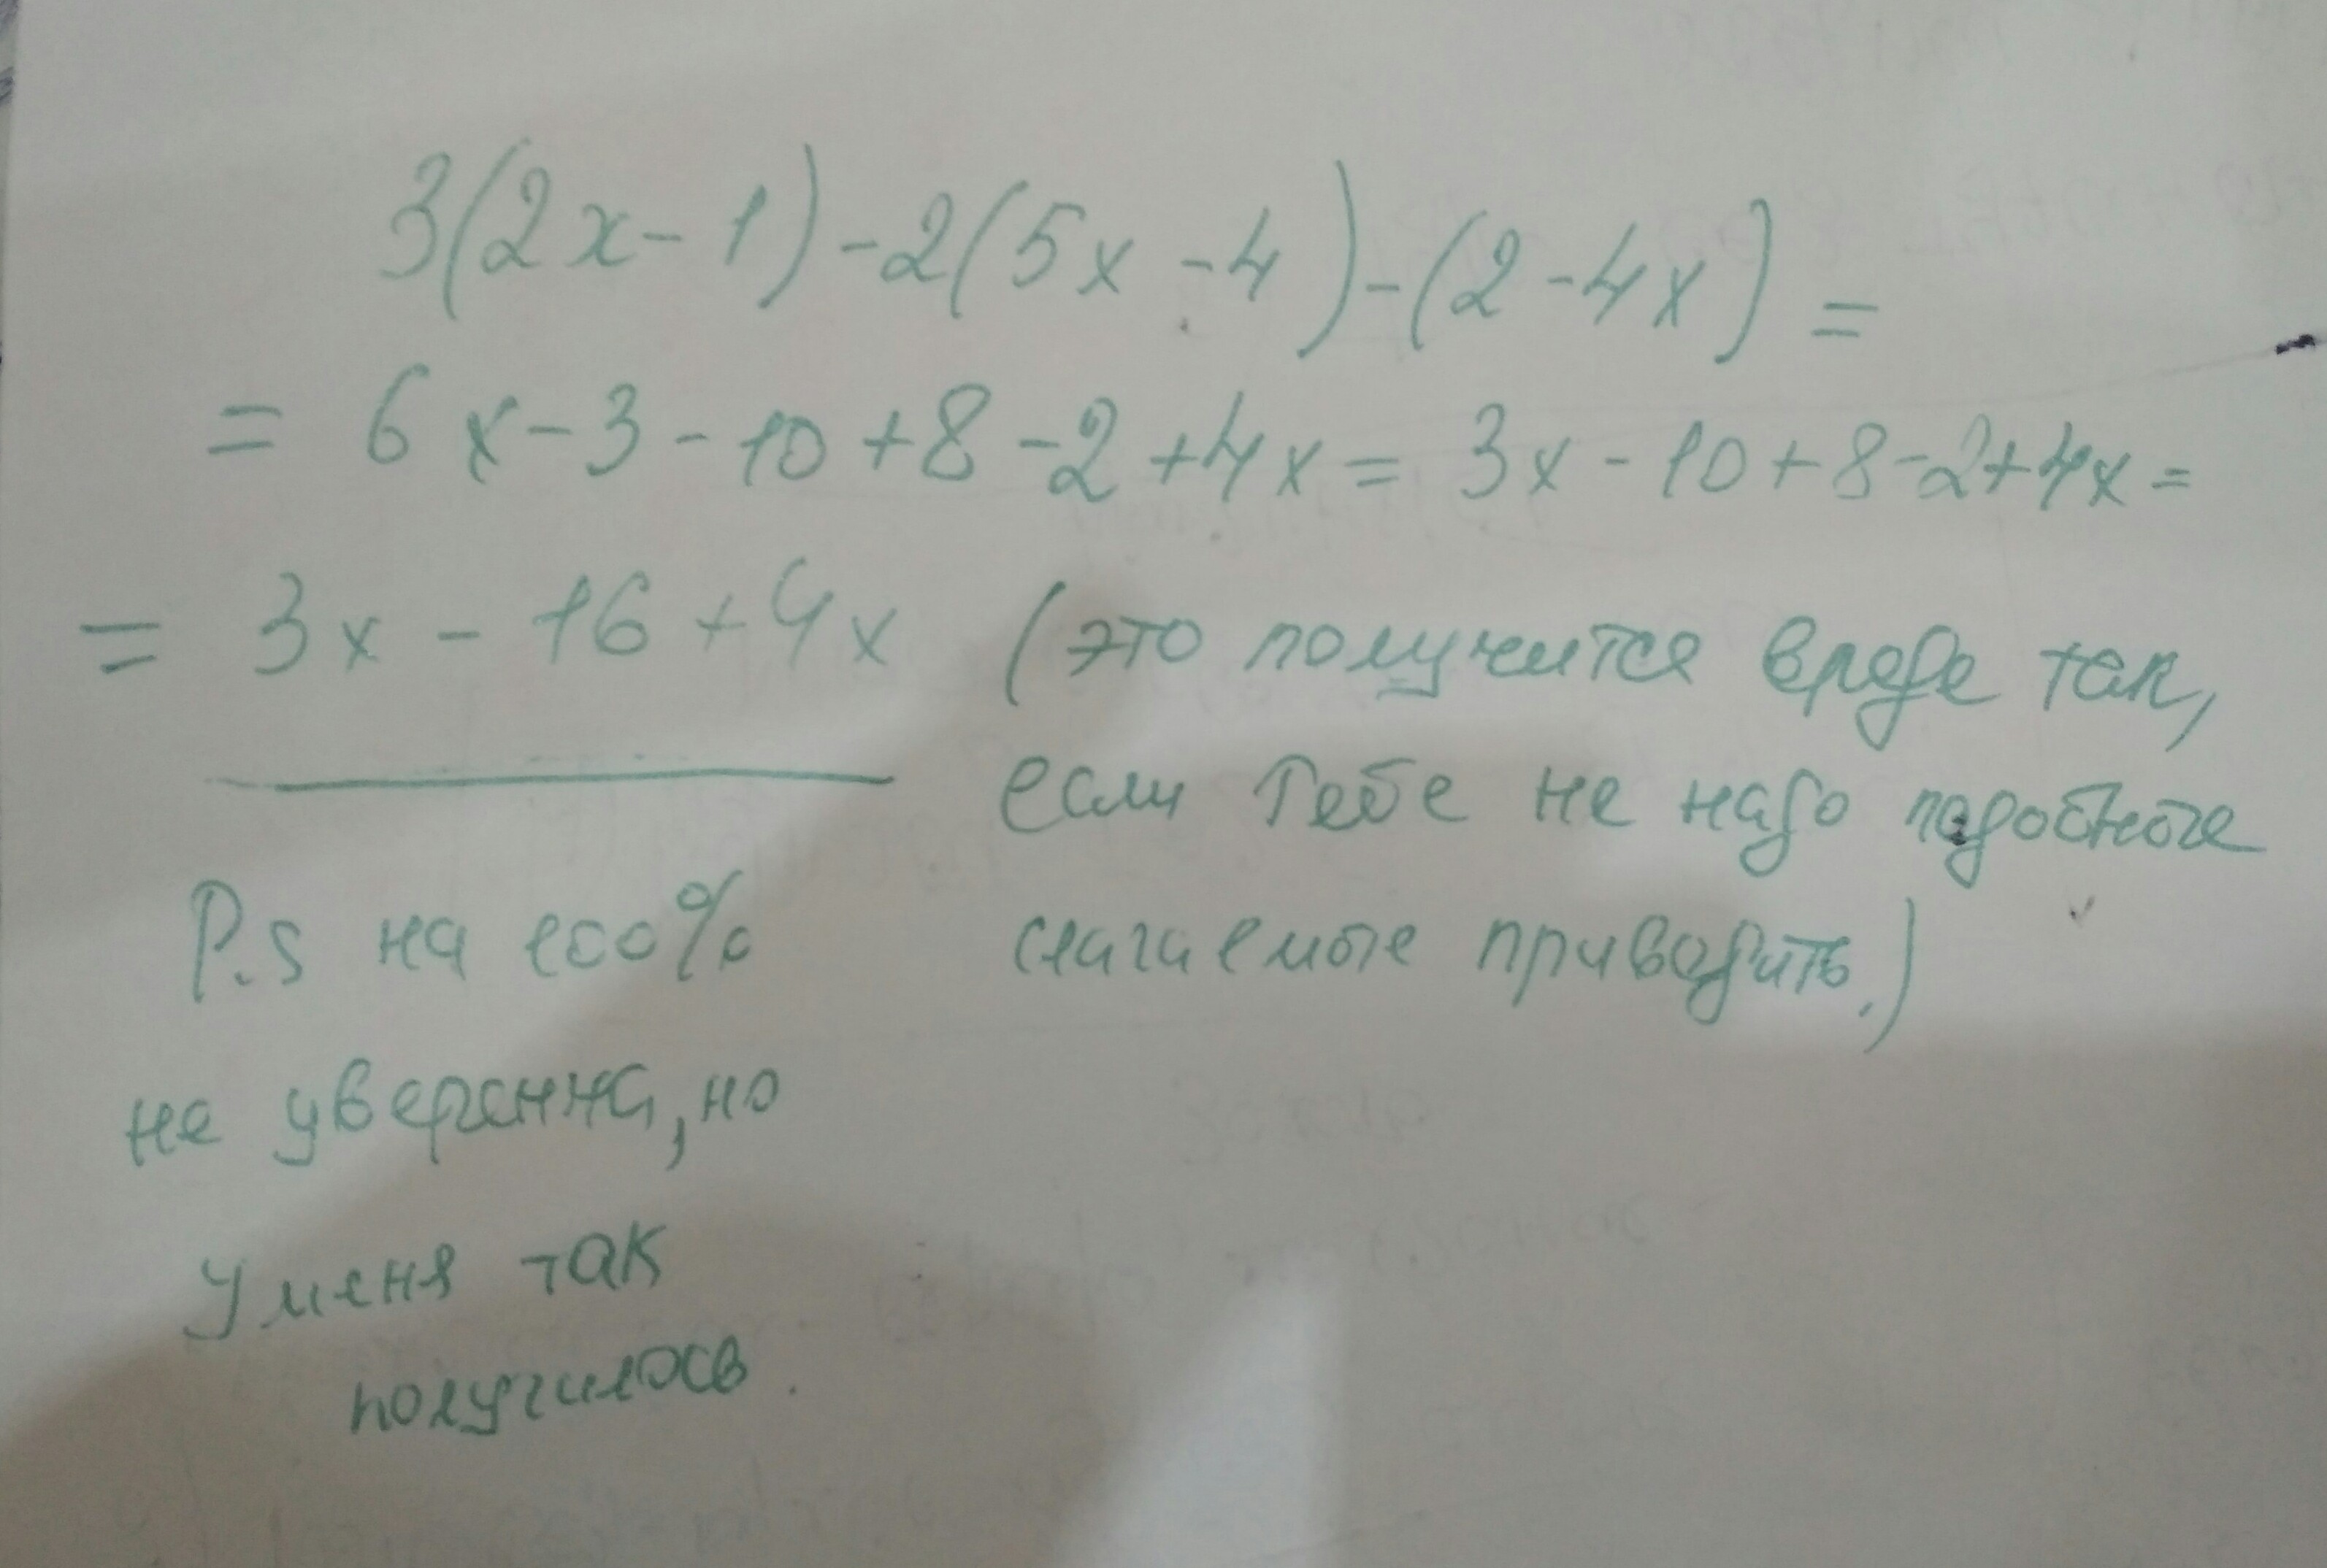 3(2x-1)-2(5x-4)-(2-4x)=
= 6x-3-10+8-2+4x= 3x-10+8-2+4x=
= 3x - 16 + 4x (это получится вроде так,
если тебе не надо подобные
слагаемые приводить.)
P.S на 100%
не уверенна, но
У меня так
получилось.